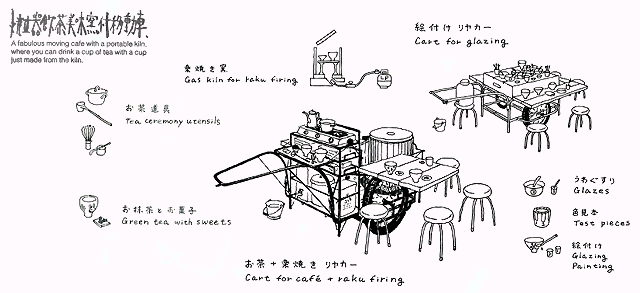 A fabulous moving cafe with a portable kiln,
where you can drink a cup of tea with a cup
just made from the kiln.
絵付け リヤカー
Cart for glazing
楽焼き窯
Gas kiln for raku firing
お茶道具
Tea ceremony utensils
うわぐすり
Glazes
色見本
Test pieces
お抹茶とお菓子
Green tea with sweets
絵付け
Glazing
Painting
お茶+楽焼き リヤカー
Cart for café + raku firing